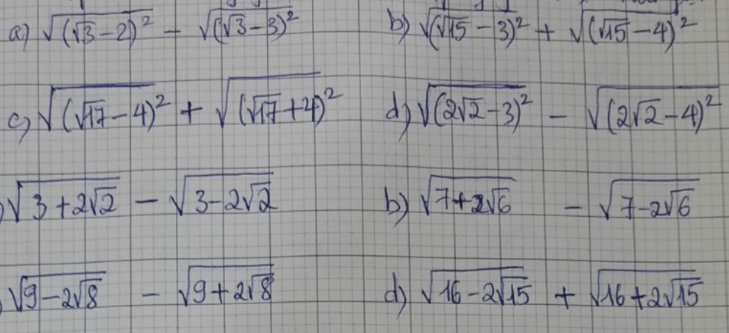 a) √(√3-2)² - √(√3-3)² b) √(√15-3)² + √(√15-4)²
c) √(√17-4)² + √(√17+4)² d) √(2√2-3)² - √(2√2-4)²
) √3+2√2 - √3-2√2 b) √7+2√6 - √7-2√6
) √9-2√8 - √9+2√8 d) √16-2√15 + √16+2√15